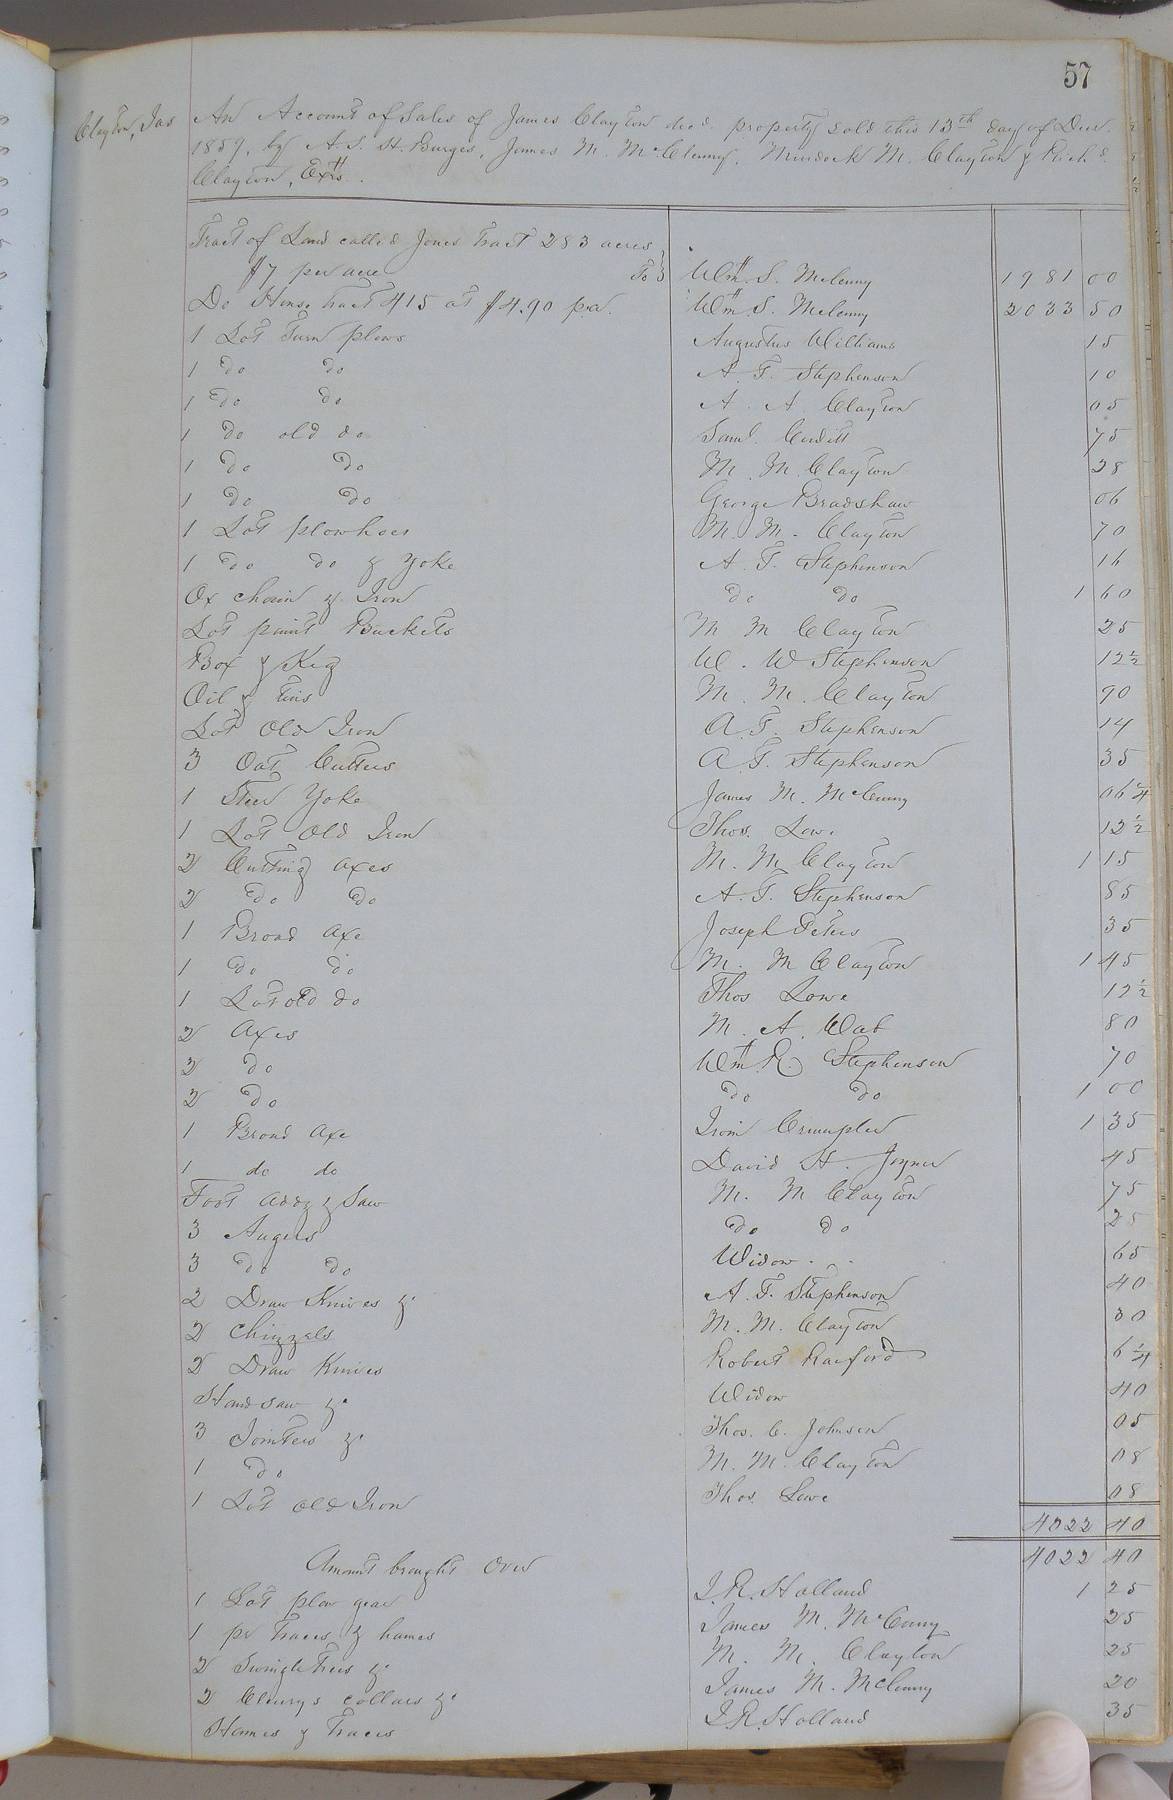 57
Clayton, Jas
An Account of Sales of James Clayton decd. property sold this 13th day of Decr.
1859, by A. S. H. Burges, James M. McClenny, Murdock M. Clayton & Richd.
Clayton, Extrs.
Tract of Land called Jones Tract 283 acres
$7 per acre To Wm. S. McClenny 1981 00
Do House Tract 415 at $4.90 p.a. Wm. S. McClenny 2033 50
1 Lot Turn plows Augustus Williams 15
1 Do Do A. T. Stephenson 10
1 Do Do A. A. Clayton 05
1 Do old do Saml. 75
1 Do Do M. M. Clayton 28
1 Do Do George Bradshaw 06
1 Lot plowhoes M. M. Clayton 70
1 Do Do & Yoke A. T. Stephenson 16
Ox chain & Iron Do Do 1 60
Lot paint Buckets M M Clayton 25
Box & Keg W. W Stephenson 12 1/2
Oil & Tins M. M. Clayton 90
Lot Old Iron A. T. Stephenson 14
3 Oat Cutters A. T. Stephenson 35
1 Steer Yoke James M. McClenny 06 1/4
1 Lot Old Iron Thos. Lowe 12 1/2
2 Cutting axes M. M. Clayton 1 15
2 Do Do A. T. Stephenson 85
1 Broad Axe Joseph Peters 35
1 Do Do M. M Clayton 1 45
1 Lot old do Thos Lowe 12 1/2
2 Axes M. A. 80
2 Do Wm R. Stephenson 70
2 Do Do Do 1 00
1 Broad Axe Crumpler 1 35
1 do do David H. Joyner 45
Foot addz & Saw M. M Clayton 75
3 Augers Do Do 25
3 Do Do Widow 65
2 Draw Knives &c A. T. Stephenson 40
2 Chizzels M. M. Clayton 30
2 Draw Knives Robert Raiford 6 1/4
Hand saw &c Widow 40
3 Jointers &c Thos. C. Johnson 05
1 Do M. M. Clayton 08
1 Lot old Iron Thos Lowe 08
4022 40
Amount brought Over 4022 40
1 Lot plow gear J. R. Holland 1 25
1 pr Traces & hames James M. McClenny 25
2 Swingle Trees &c M. M. Clayton 25
2 collars &c James M. McClenny 20
Hames & Traces J. R. Holland 35